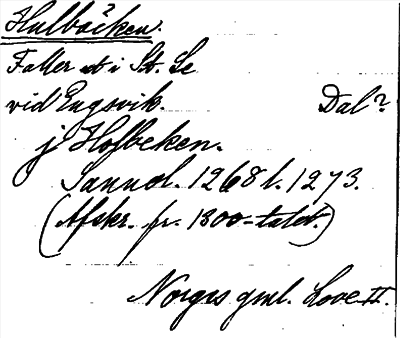 Hulbäcken.
Faller ut i St. Le
vid Engsvik. Dal?
j Holbeken.
Sannol. 1268 l. 1273.
(Afskr. fr. 1300-talet.)
Norges gml. Love II.